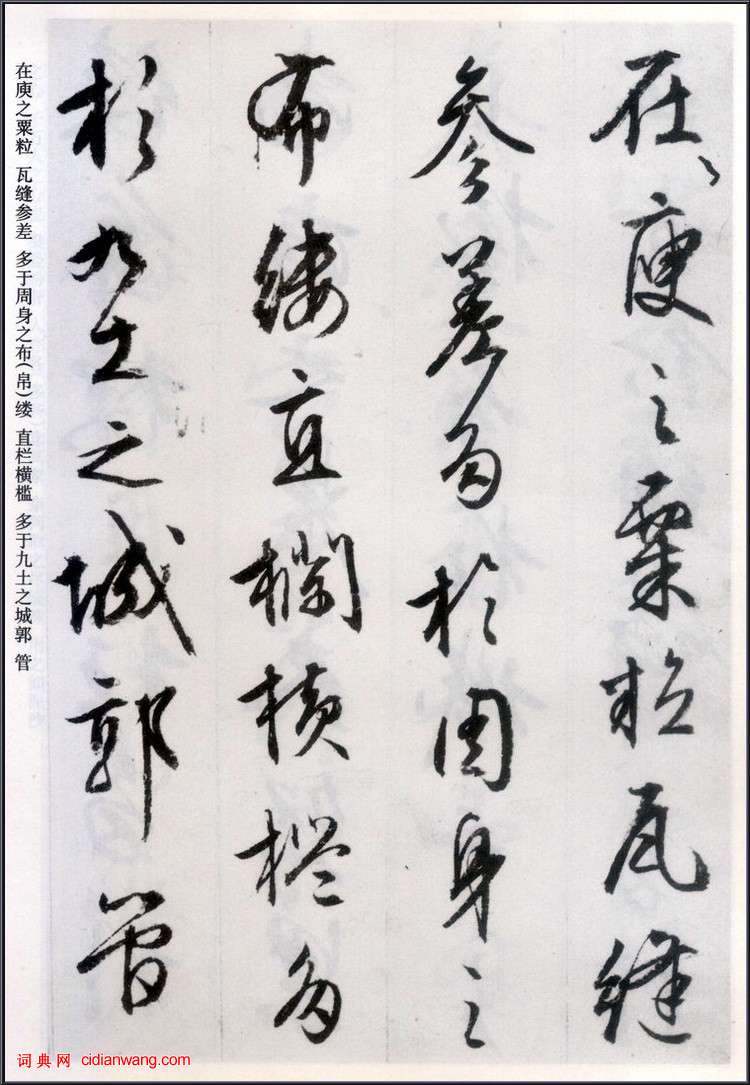 在庾之粟粒瓦縫
參差多於周身之
布縷直欄橫檻多
於九土之城郭管
在庾之粟粒 瓦缝参差 多于周身之布(帛)缕 直栏横槛 多于九土之城郭 管
词典网 cidianwang.com